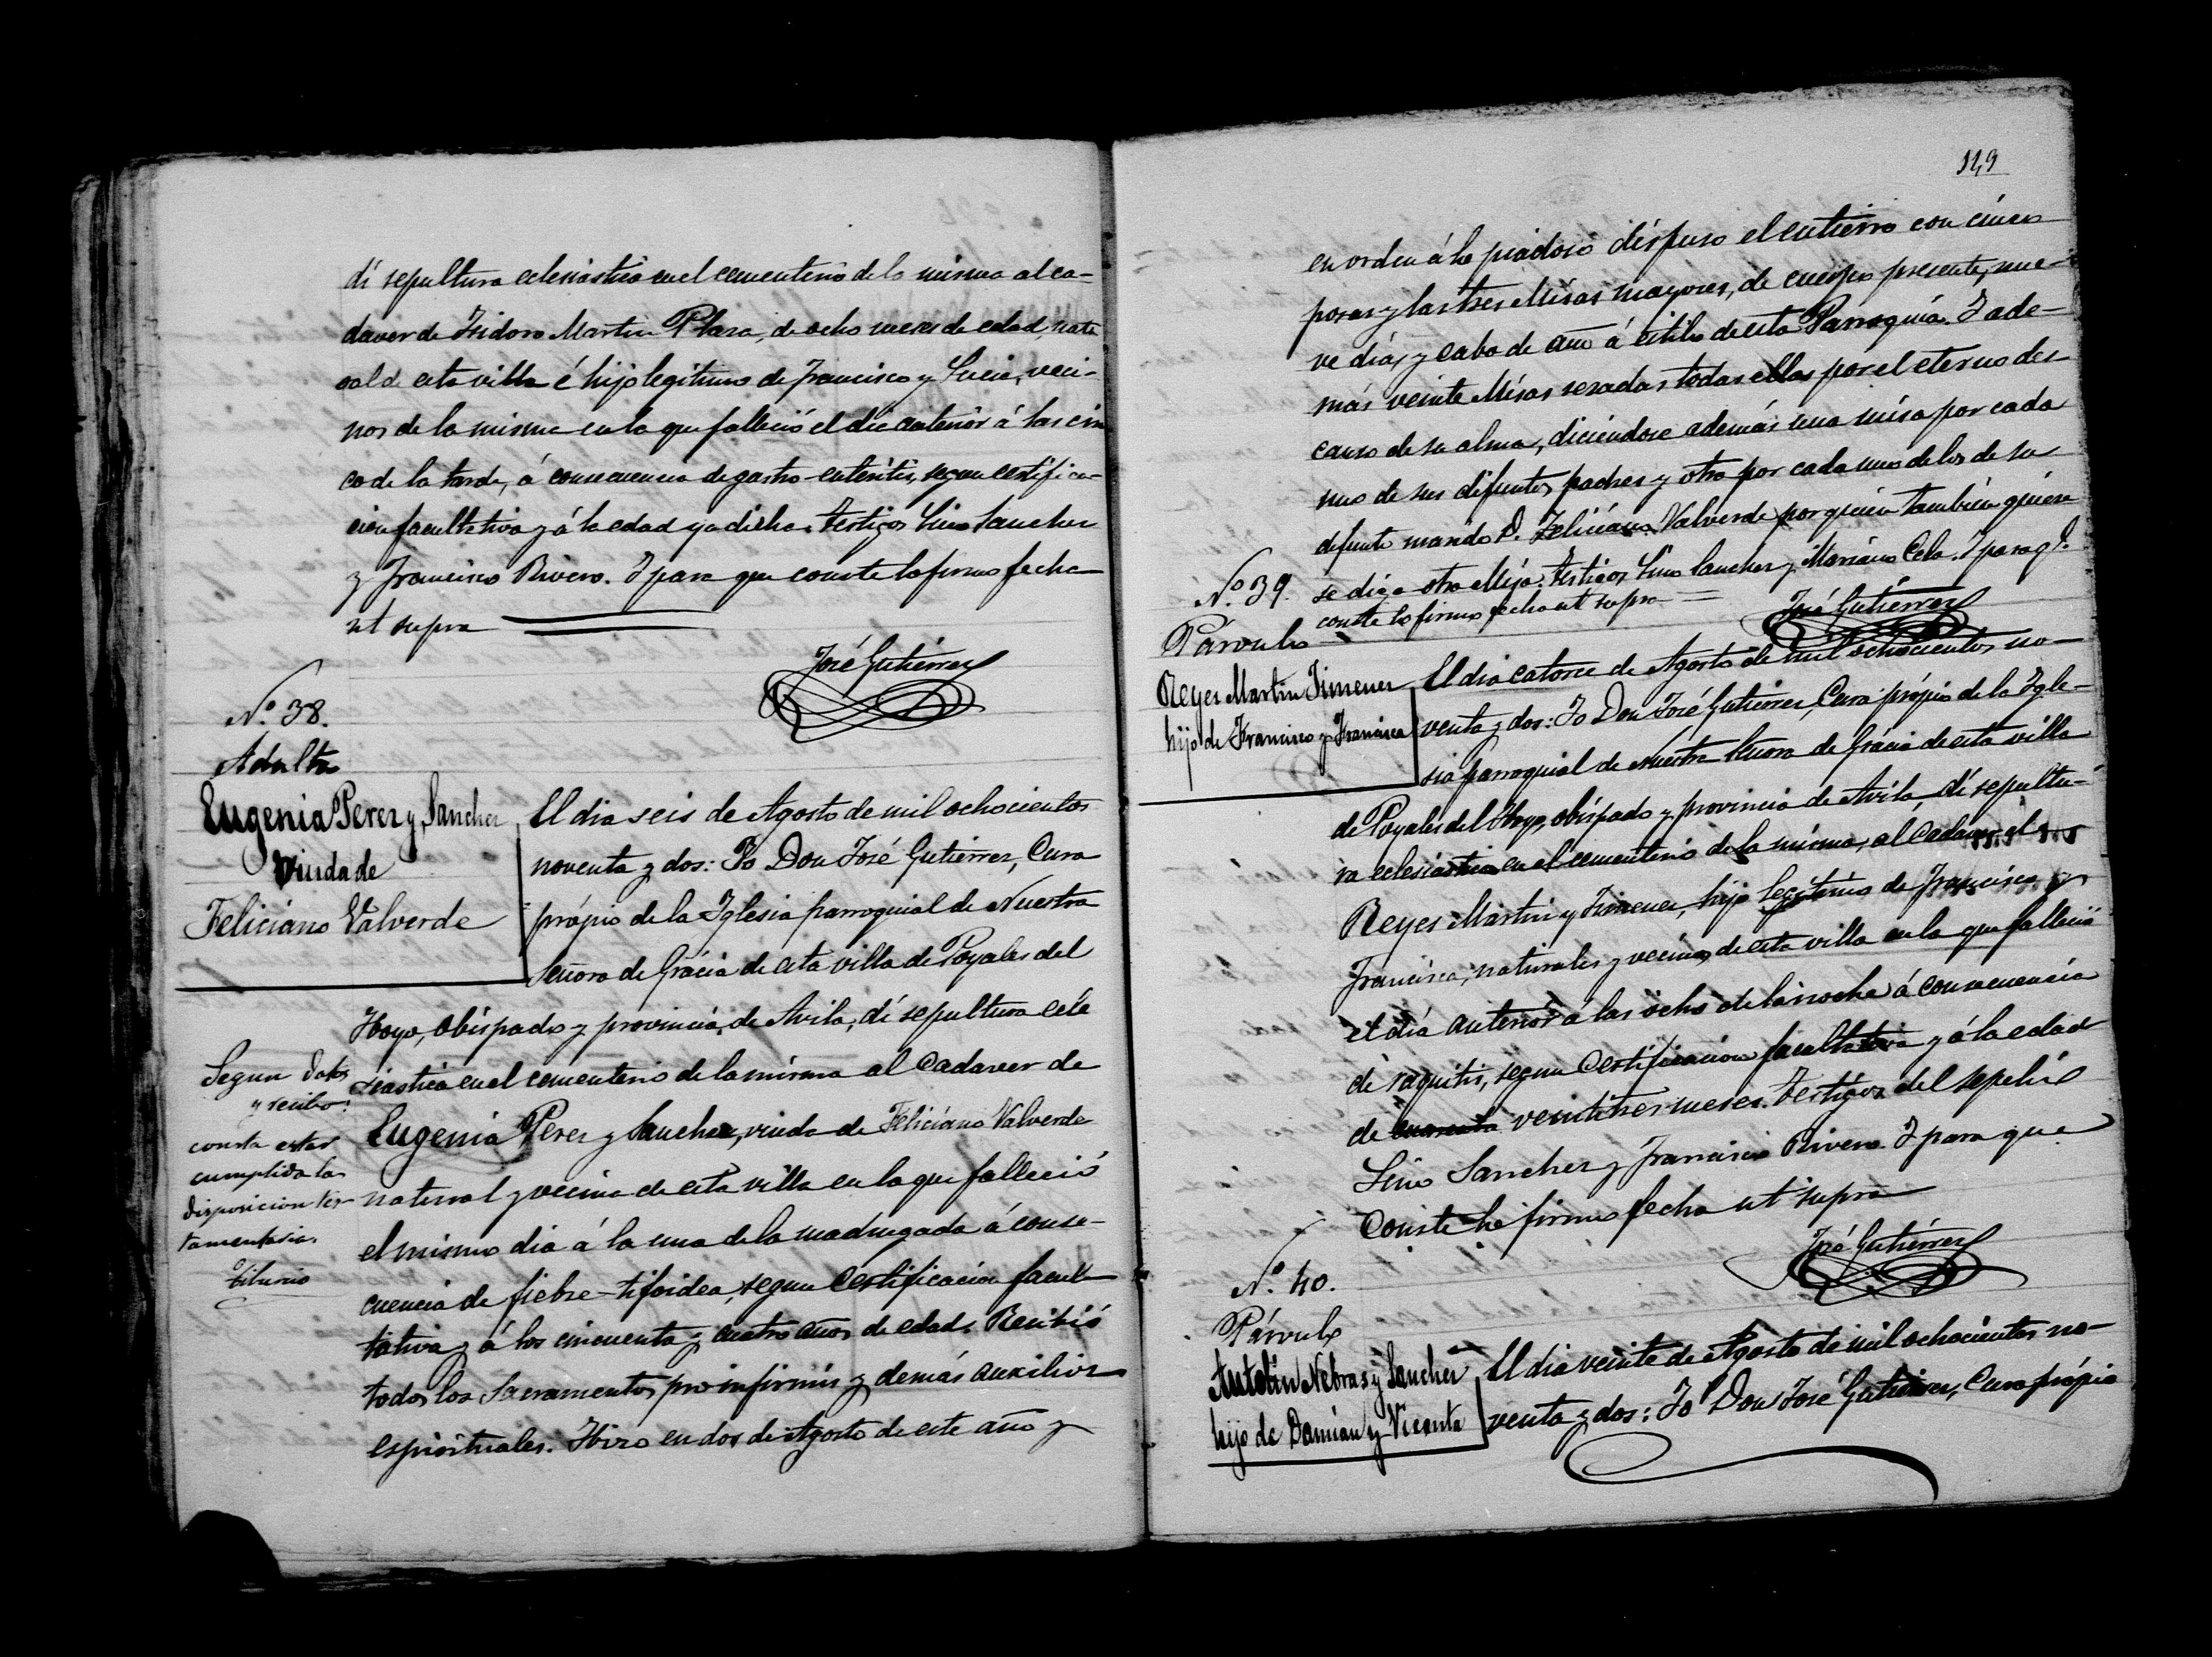 di sepultura eclesiastica en el cementerio de la misma al ca-
daver de Isidoro Martin Plaza, de ocho meses de edad, natu
ral de esta villa é hijo legitimo de Francisco y Lucia, veci-
nos de la misma en la que falleció el dia anterior á las cin
co de la tarde, á consecuencia de gastro-enteritis, segun certifica-
cion facultativa y á la edad ya dicha. Testigos Lino Sanchez
y Francisco Rivero. Y para que conste lo firmo fecha
ut supra
José Gutiérrez
Nº 38.
Adulta
Eugenia Perez y Sanchez
Viuda de
Feliciano Valverde
El dia seis de Agosto de mil ochocientos
noventa y dos: Yo Don José Gutiérrez, Cura
própio de la Iglesia parroquial de Nuestra
Señora de Grácia de esta villa de Poyales del
Hoyo, obispado y provincia, de Avila, dí sepultura ecle
siastica en el cementerio de la misma al Cadaver de
Eugenia Perez y Sanchez, viuda de Feliciano Valverde
natural y vecina de esta villa en la que falleció
el mismo dia á la una de la madrugada á conse-
cuencia de fiebre-tifoidea, segun Certificacion facul
tativa y á los cincuenta y cuatro años de edad. Recibió
todos los Sacramentos, pro infirmis y demás auxilios
espirituales. Hizo en dos de Agosto de este año y
Segun datos
y recibo:
consta estar
cumplida la
disposicion tes-
tamentaria.
Tiburcio
149
en orden á lo piadoso dispuso el entierro con cinco
posas y las tres Misas mayores, de cuerpo presente, nue-
ve dias, y cabo de año á estilo de esta Parroquia. Y ade-
más veinte Misas rezadas todas ellas por el eterno des
canso de su alma, diciendose además una misa por cada
uno de sus difuntos padres y otra por cada uno de los de su
difunto marido D. Feliciano Valverde por quien también quiere
se diga otra Misa. Testigos Lino Sanchez y Mariano Cela. Y para q.e
conste lo firmo fecha ut supra
José Gutiérrez
Nº 39.
Párvulo
Reyes Martin Jimenez
hijo de Francisco y Francisca
El dia catorce de Agosto de mil ochocientos no-
venta y dos: Yo Don José Gutiérrez, Cura própio de la Igle-
sia parroquial de Nuestra Señora de Grácia de esta villa
de Poyales del Hoyo, obispado y provincia de Avila, dí sepultu-
ra eclesiastica en el cementerio de la misma, al Cadaver
Reyes Martin y Jimenez, hijo legítimo de Francisco y
Francisca, naturales y vecinos de esta villa en la que falleció
el día anterior á las ocho de la noche á consecuencia
de raquitis, segun Certificacion facultativa y á la edad
de cuarenta veintitres meses. Testigos del sepelio
Lino Sanchez y Francisco Rivero. Y para que
Conste lo firmo fecha ut supra
José Gutiérrez
Nº 40.
Párvulo
Antolin Nebras y Sanchez
hijo de Damián y Vicenta
El dia veinte de Agosto de mil ochocientos no-
venta y dos: Yo Don José Gutiérrez, Cura própio